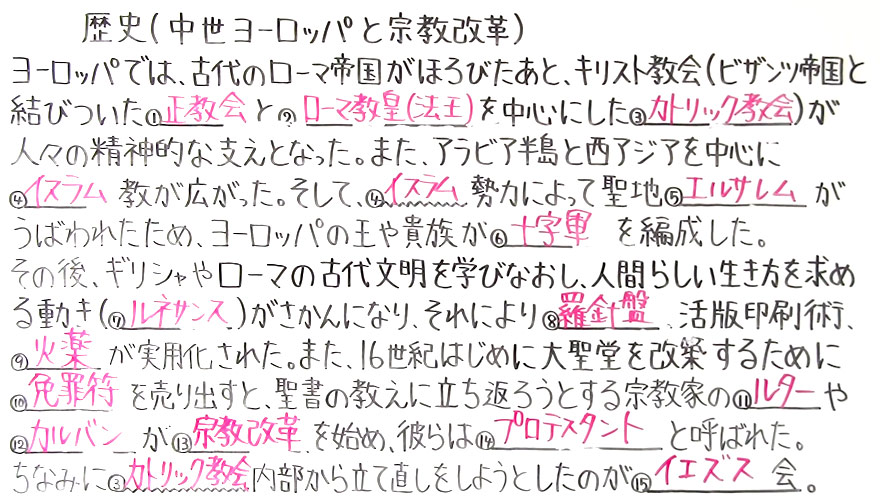 歴史(中世ヨーロッパと宗教改革)
ヨーロッパでは、古代のローマ帝国がほろびたあと、キリスト教会(ビザンツ帝国と
結びついた①正教会と②ローマ教皇(法王)を中心にした③カトリック教会)が
人々の精神的な支えとなった。また、アラビア半島と西アジアを中心に
④イスラム教が広がった。そして、④イスラム勢力によって聖地⑤エルサレムが
うばわれたため、ヨーロッパの王や貴族が⑥十字軍を編成した。
その後、ギリシャやローマの古代文明を学びなおし、人間らしい生き方を求め
る動き(⑦ルネサンス)がさかんになり、それにより⑧羅針盤、活版印刷術、
⑨火薬が実用化された。また、16世紀はじめに大聖堂を改築するために
⑩免罪符を売り出すと、聖書の教えに立ち返ろうとする宗教家の⑪ルターや
⑫カルバンが⑬宗教改革を始め、彼らは⑭プロテスタントと呼ばれた。
ちなみに③カトリック教会内部から立て直しをしようとしたのが⑮イエズス会。